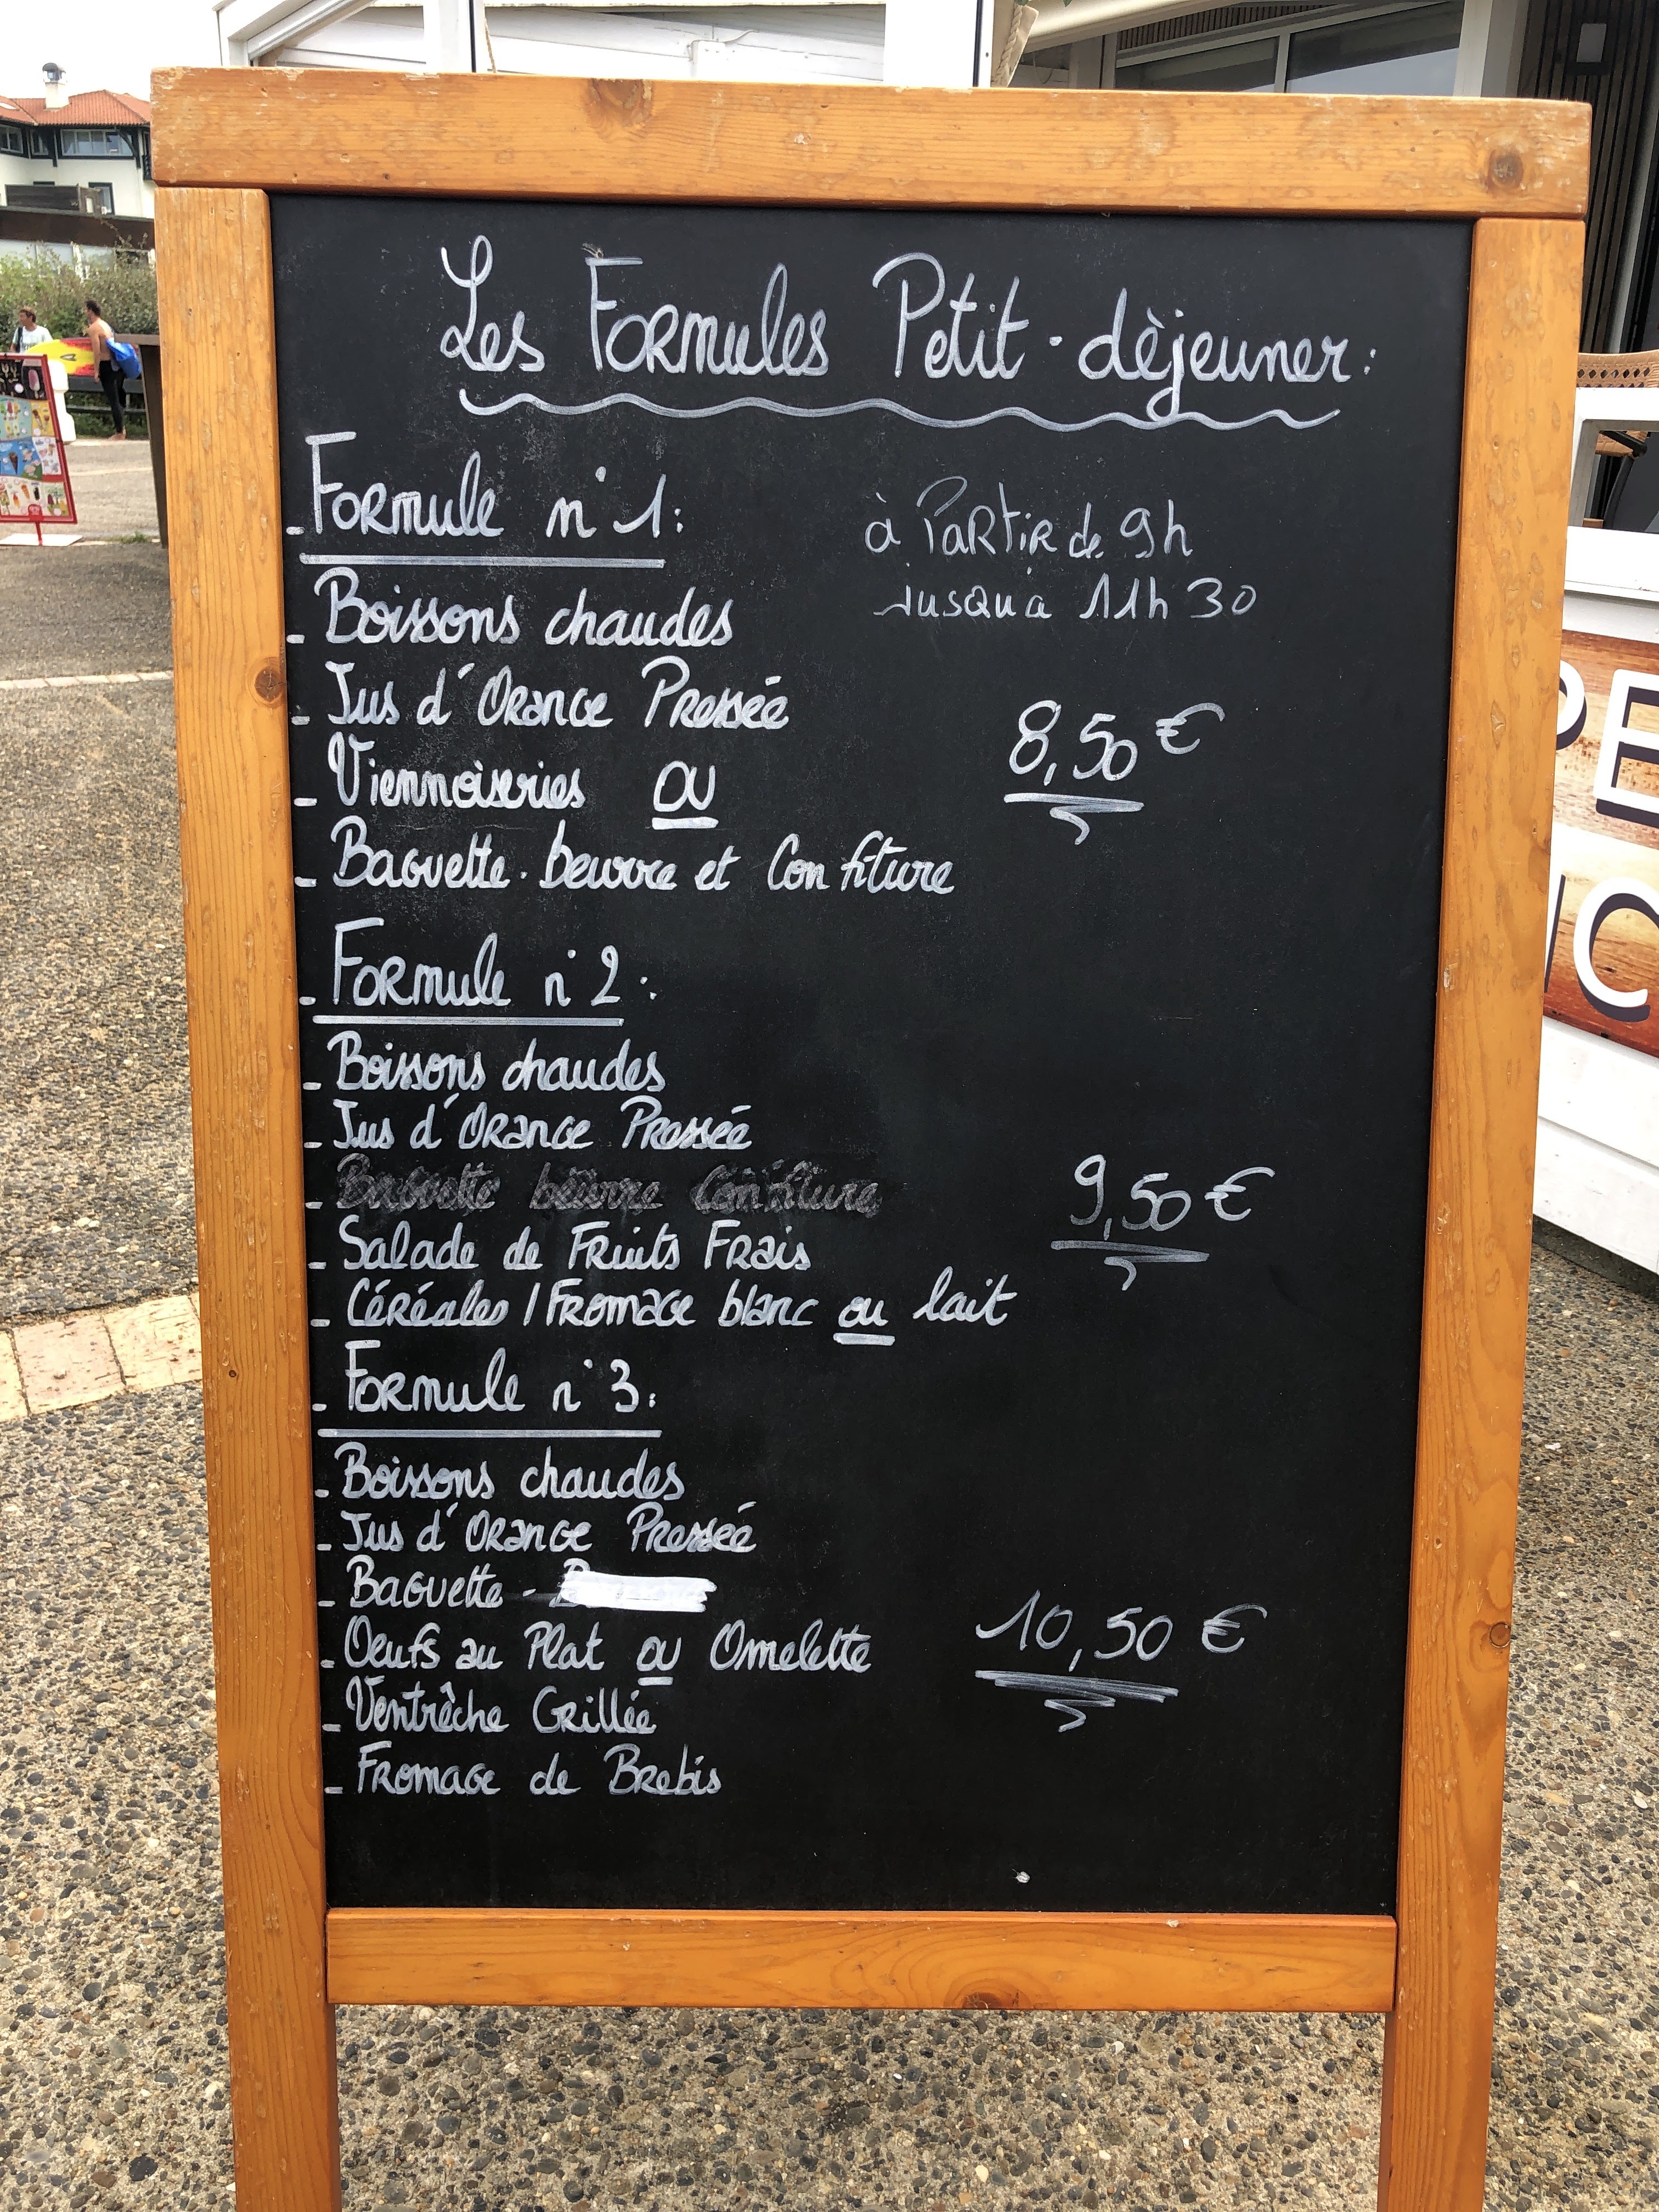 Les Formules Petit-dèjeuner:
- Formule n°1:
à Partir de 9h
jusqu'a 11h30
- Boissons chaudes
- Jus d'Orange Pressée
- Viennoiseries OU
8,50 €
- Baguette.beurre et Confiture
- Formule n°2:
- Boissons chaudes
- Jus d'Orange Pressée
- Baguette beurre Confiture
9,50 €
- Salade de Fruits Frais
- Céréales / Fromage blanc ou lait
- Formule n°3:
- Boissons chaudes
- Jus d'Orange Pressée
- Baguette -
- Oeufs au Plat ou Omelette
10,50 €
- Ventrêche Grillée
- Fromage de Brebis